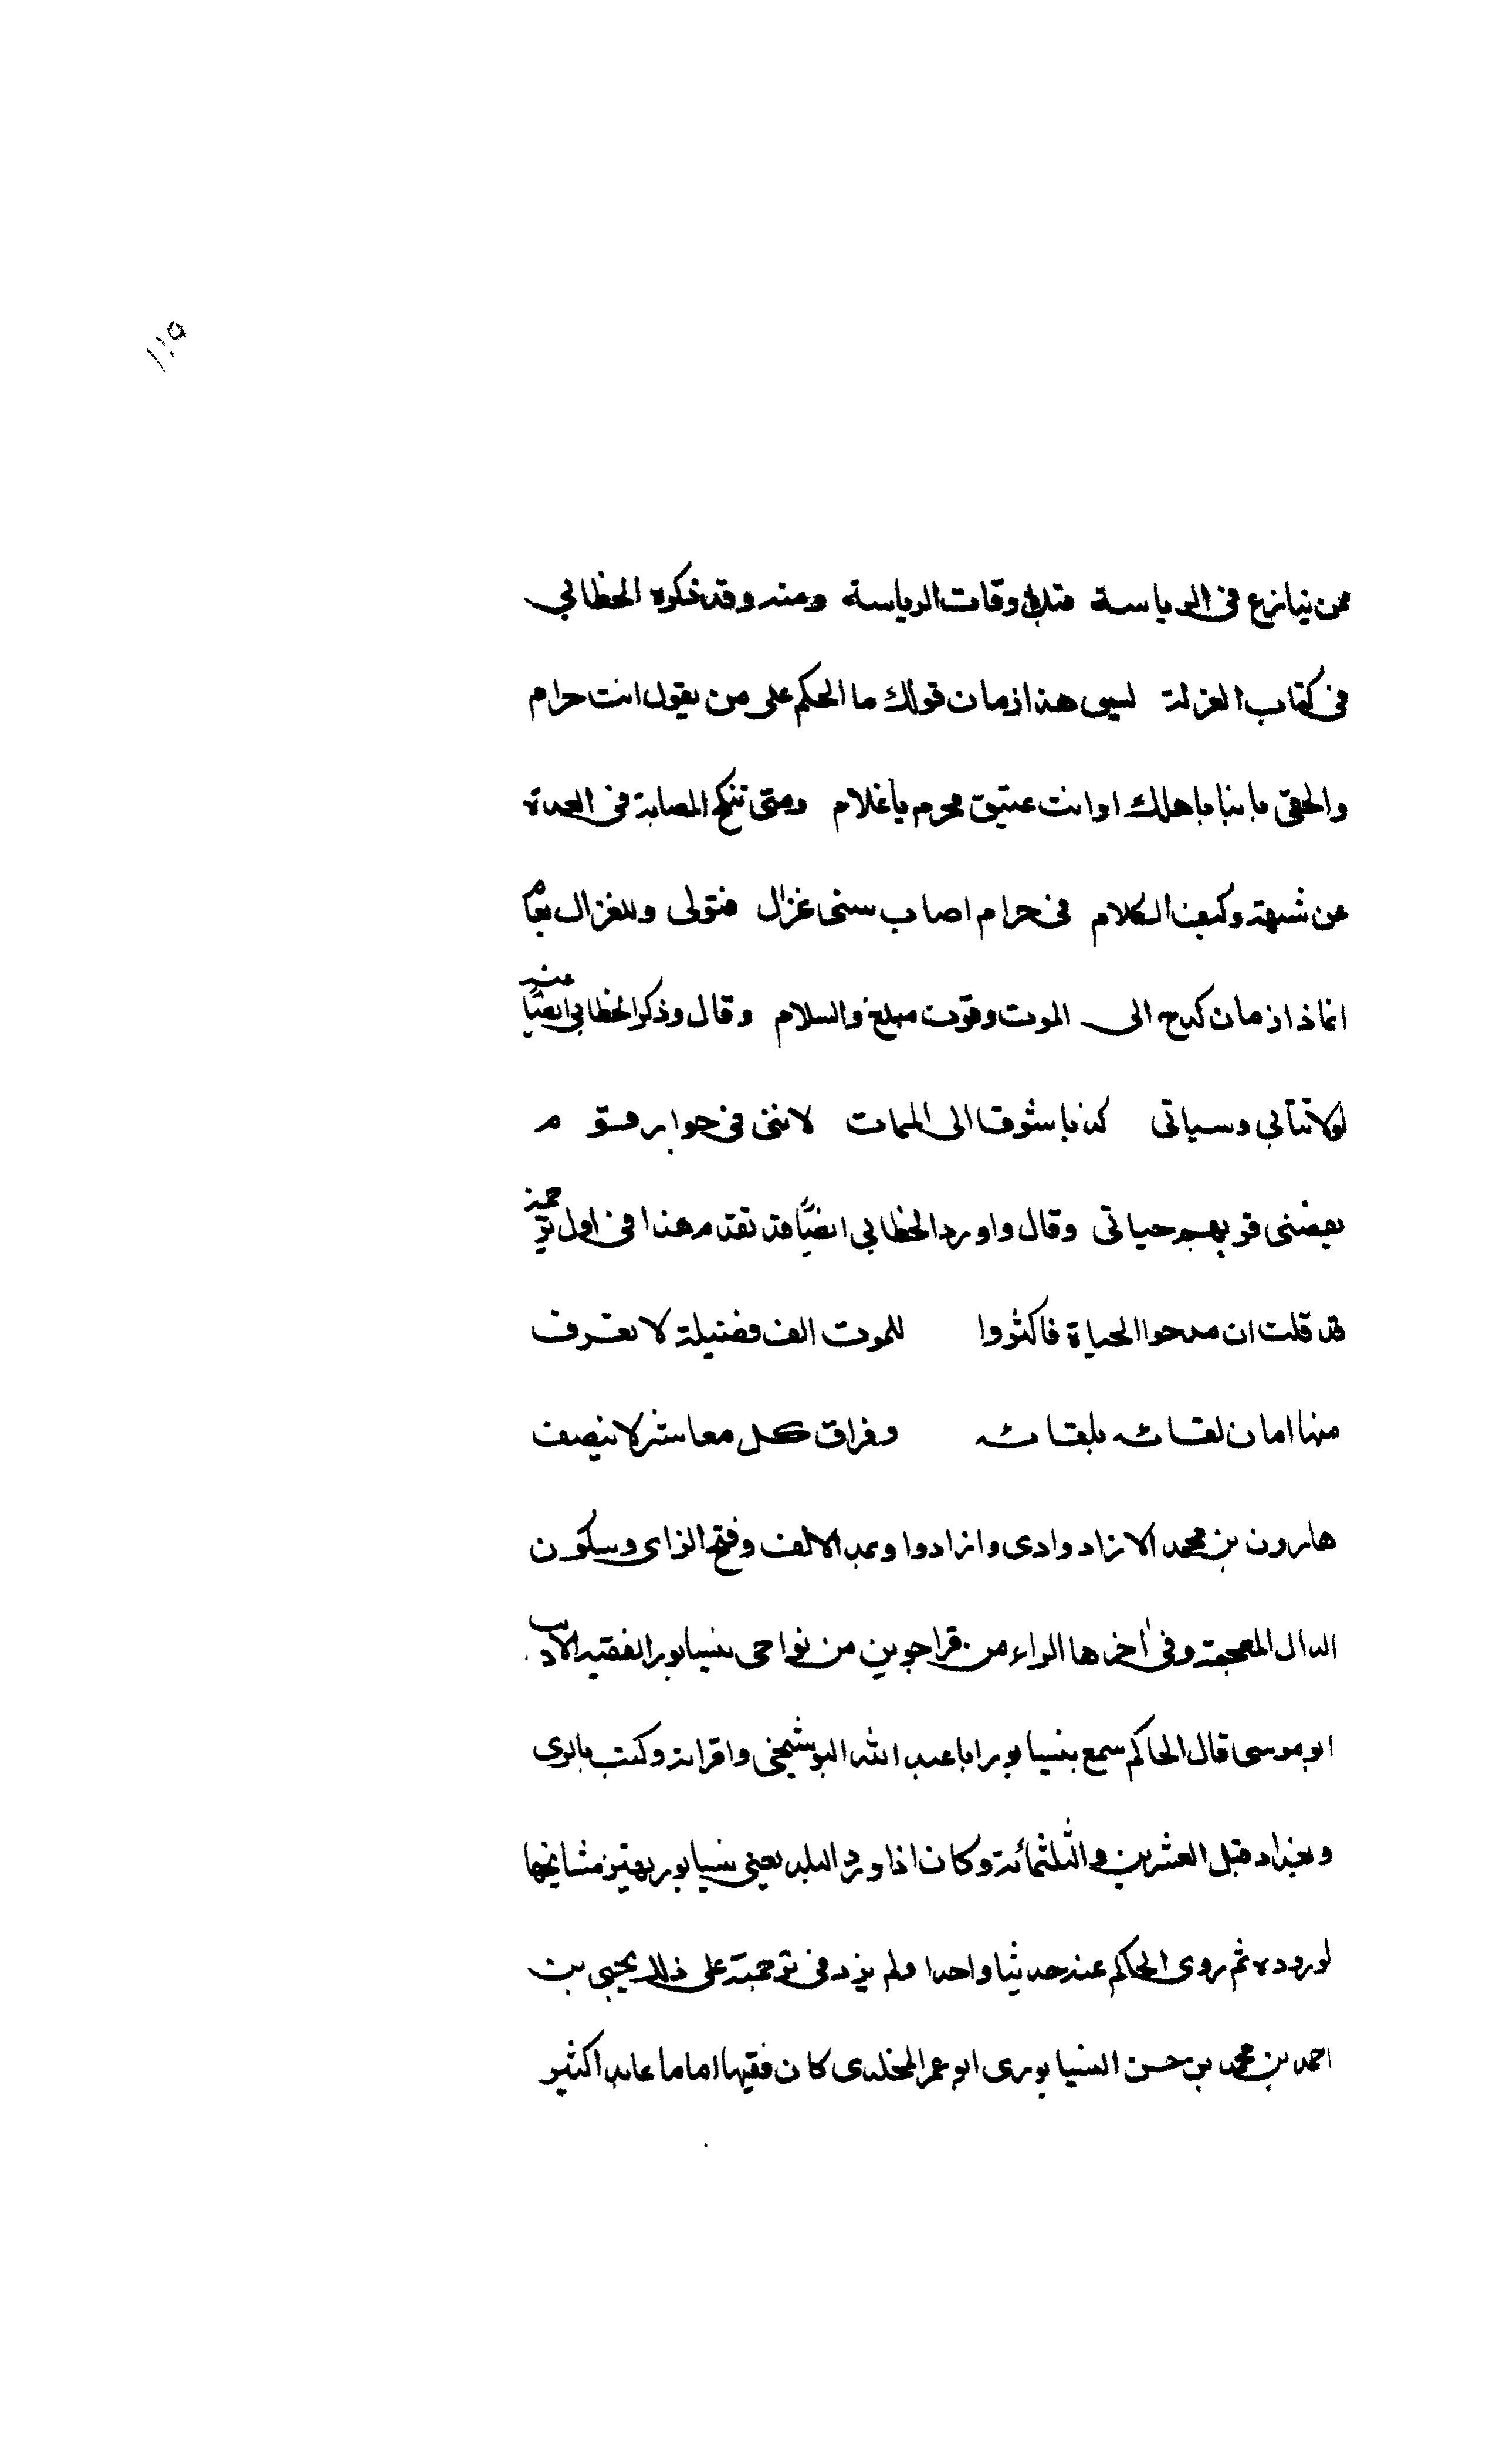 ١١٥
ممن ينازع فى الرياسة قبل اوقات الرياسة ومنه وقد ذكره الخطابي
فى كتاب العزلة ليس هذا زمان قولك ما الحكم على من يقول انت حرام
والحقى بائنا باهلك او انت عتيق محرم ياغلام ومتى تنكح المصابة فى العدة
عن شبهة وكيف الكلام فى حرام اصاب سن غزال فتولى وللغزال بغام
انما ذا زمان كدح الى الموت وقوت مبلغ والسلام وقال وذكر الخطابي ايضًا عنه
كن باشوقا الى الممات لاننى فى جوار قوم
بغضنى قربهم حياتى وقال واورد الخطابي ايضًا قد تقدم هذا فى اول
قد قلت ان مدحوا الحياة فاكثروا للموت الف فضيلة لا تعرف
منها امان لقائه بلقائه وفراق كل معاشر لا ينصف
هارون بن محمد الازادوادى وازادوا وبمد الالف وفتح الزاى وسكون
الدال المعجمة وفى اخرها الراء من قراجوين من نواحى نيسابور الفقيه الاديب
ابو موسى قال الحاكم سمع بنيسابور ابا عبد الله البوشنجى واقرانه وكتب بالرى
وبغداد قبل العشرين والثلثمائة وكان اذا ورد البلد يعنى نيسابور يهتز مشايخها
لوروده ثم روى الحاكم عنه حديثا واحدا ولم يزد فى ترجمته على ذلك يحيى بن
احمد بن محمد بن حسن النيسابورى ابو عمر المخلدى كان فقيها اماما عابدا كثير